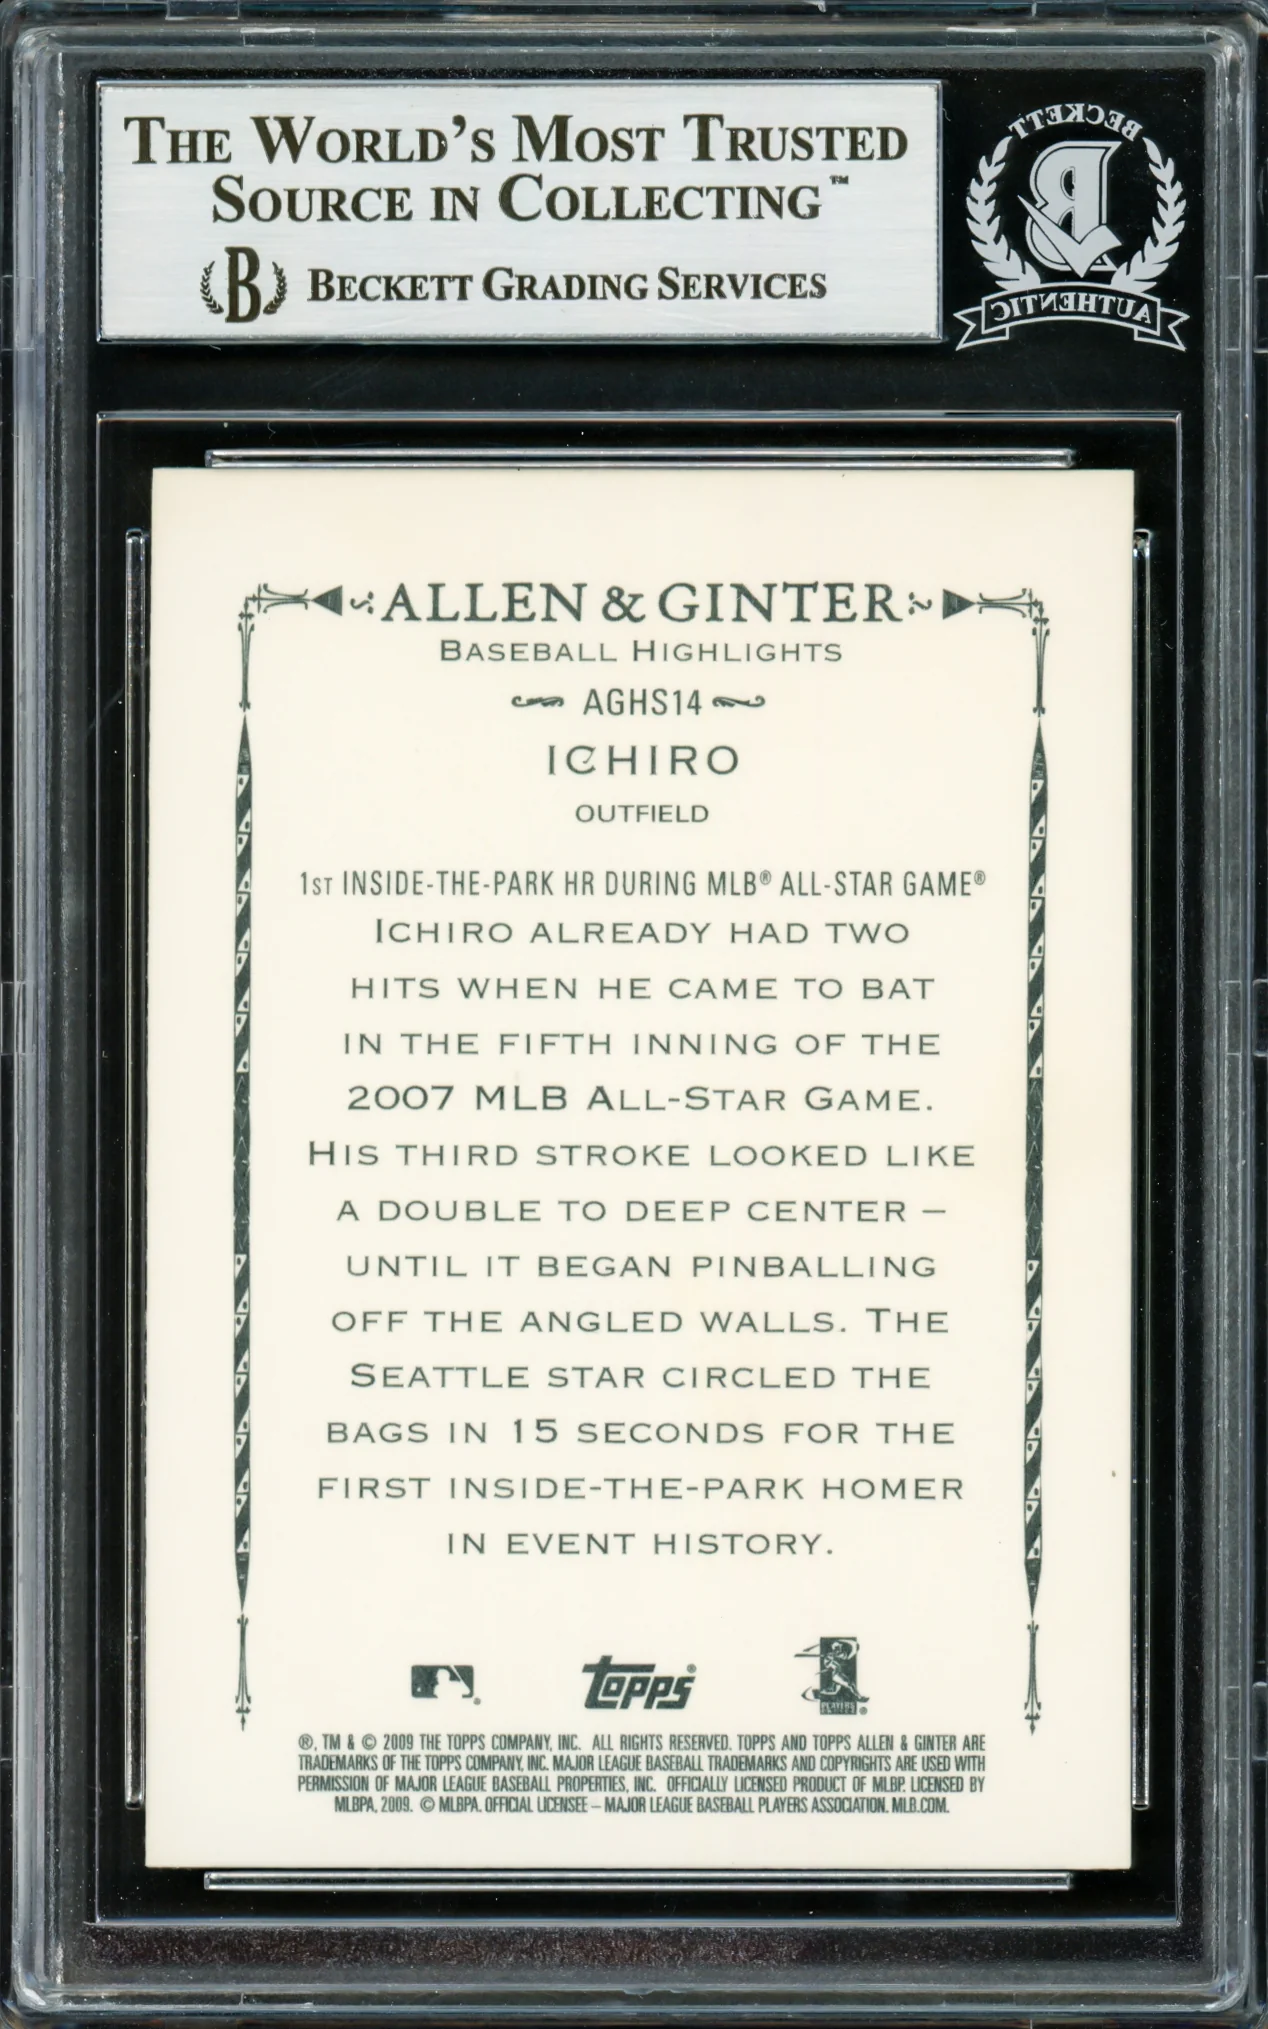 THE WORLD'S MOST TRUSTED
SOURCE IN COLLECTING™
B BECKETT GRADING SERVICES
BECKETT
B
AUTHENTIC
ALLEN & GINTER
BASEBALL HIGHLIGHTS
AGHS14
ICHIRO
OUTFIELD
1ST INSIDE-THE-PARK HR DURING MLB® ALL-STAR GAME®
ICHIRO ALREADY HAD TWO
HITS WHEN HE CAME TO BAT
IN THE FIFTH INNING OF THE
2007 MLB ALL-STAR GAME.
HIS THIRD STROKE LOOKED LIKE
A DOUBLE TO DEEP CENTER –
UNTIL IT BEGAN PINBALLING
OFF THE ANGLED WALLS. THE
SEATTLE STAR CIRCLED THE
BAGS IN 15 SECONDS FOR THE
FIRST INSIDE-THE-PARK HOMER
IN EVENT HISTORY.
Topps®
PLAYERS
®, TM & © 2009 THE TOPPS COMPANY, INC. ALL RIGHTS RESERVED. TOPPS AND TOPPS ALLEN & GINTER ARE
TRADEMARKS OF THE TOPPS COMPANY, INC. MAJOR LEAGUE BASEBALL TRADEMARKS AND COPYRIGHTS ARE USED WITH
PERMISSION OF MAJOR LEAGUE BASEBALL PROPERTIES, INC. OFFICIALLY LICENSED PRODUCT OF MLBP. LICENSED BY
MLBPA, 2009. © MLBPA. OFFICIAL LICENSEE – MAJOR LEAGUE BASEBALL PLAYERS ASSOCIATION. MLB.COM.